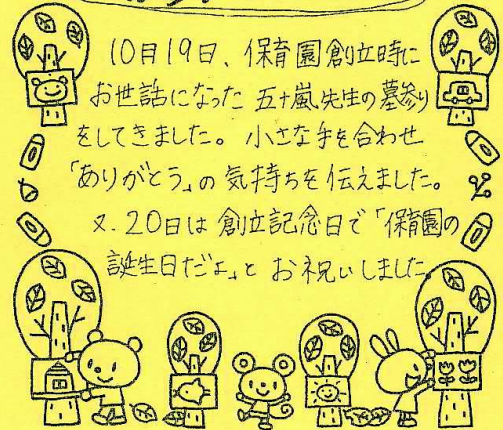 10月19日、保育園創立時に
お世話になった 五十嵐先生の墓参り
をしてきました。小さな手を合わせ
「ありがとう」の気持ちを伝えました。
又、20日は 創立記念日で「保育園の
誕生日だよ」と お祝いしました。